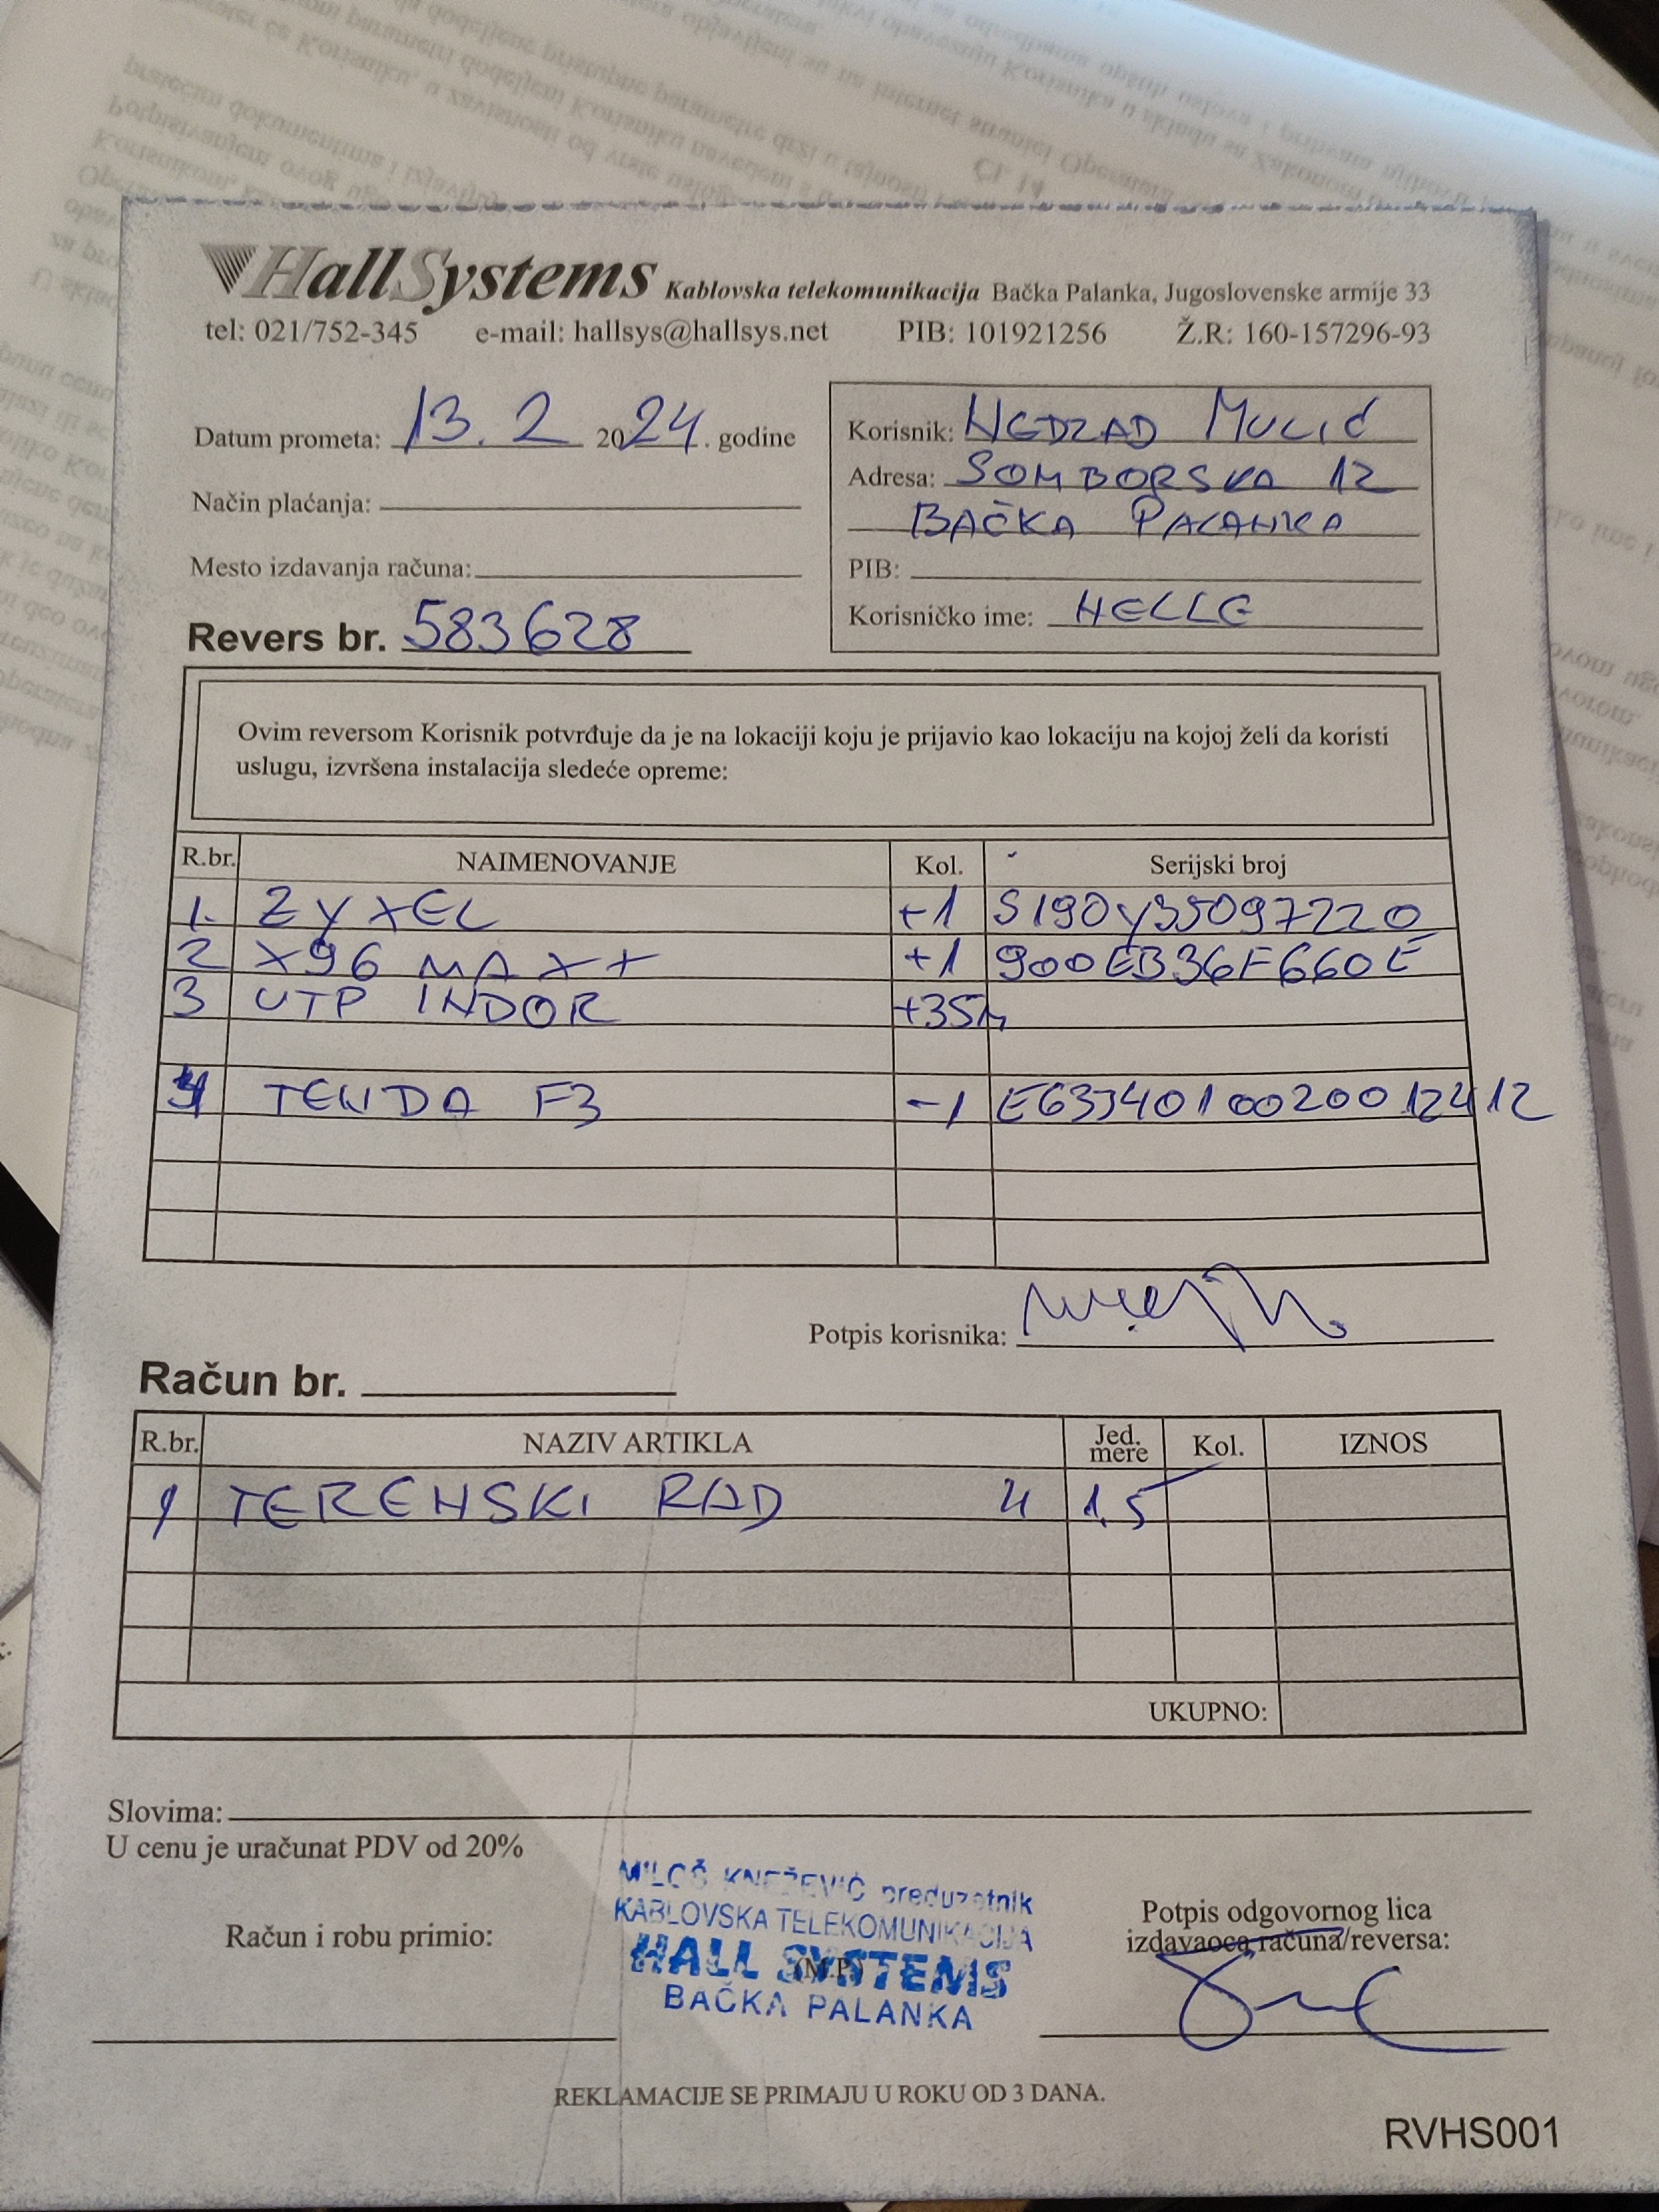 HallSystems Kablovska telekomunikacija Bačka Palanka, Jugoslovenske armije 33
tel: 021/752-345 e-mail: hallsys@hallsys.net PIB: 101921256 Ž.R: 160-157296-93
Datum prometa: 13. 2 2024. godine
Način plaćanja:
Mesto izdavanja računa:
Revers br. 583628
Korisnik: NEDZAD MULIĆ
Adresa: SOMBORSKA 12
BAČKA PALANKA
PIB:
Korisničko ime: HELLE
Ovim reversom Korisnik potvrđuje da je na lokaciji koju je prijavio kao lokaciju na kojoj želi da koristi
uslugu, izvršena instalacija sledeće opreme:
R.br. NAIMENOVANJE Kol. Serijski broj
1. ZYXEL +1 S190Y35097220
2 X96 MAX+ +1 900EB36F660E
3 UTP INDOR +35m
4 TENDA F3 -1 E6334010020012412
Potpis korisnika:
Račun br.
R.br. NAZIV ARTIKLA Jed. mere Kol. IZNOS
1 TERENSKI RAD 4 1,5
UKUPNO:
Slovima:
U cenu je uračunat PDV od 20%
Račun i robu primio:
MILOŠ KNEŽEVIĆ preduzetnik
KABLOVSKA TELEKOMUNIKACIJA
HALL SYSTEMS
(M.P.)
BAČKA PALANKA
Potpis odgovornog lica
izdavaoca računa/reversa:
REKLAMACIJE SE PRIMAJU U ROKU OD 3 DANA.
RVHS001